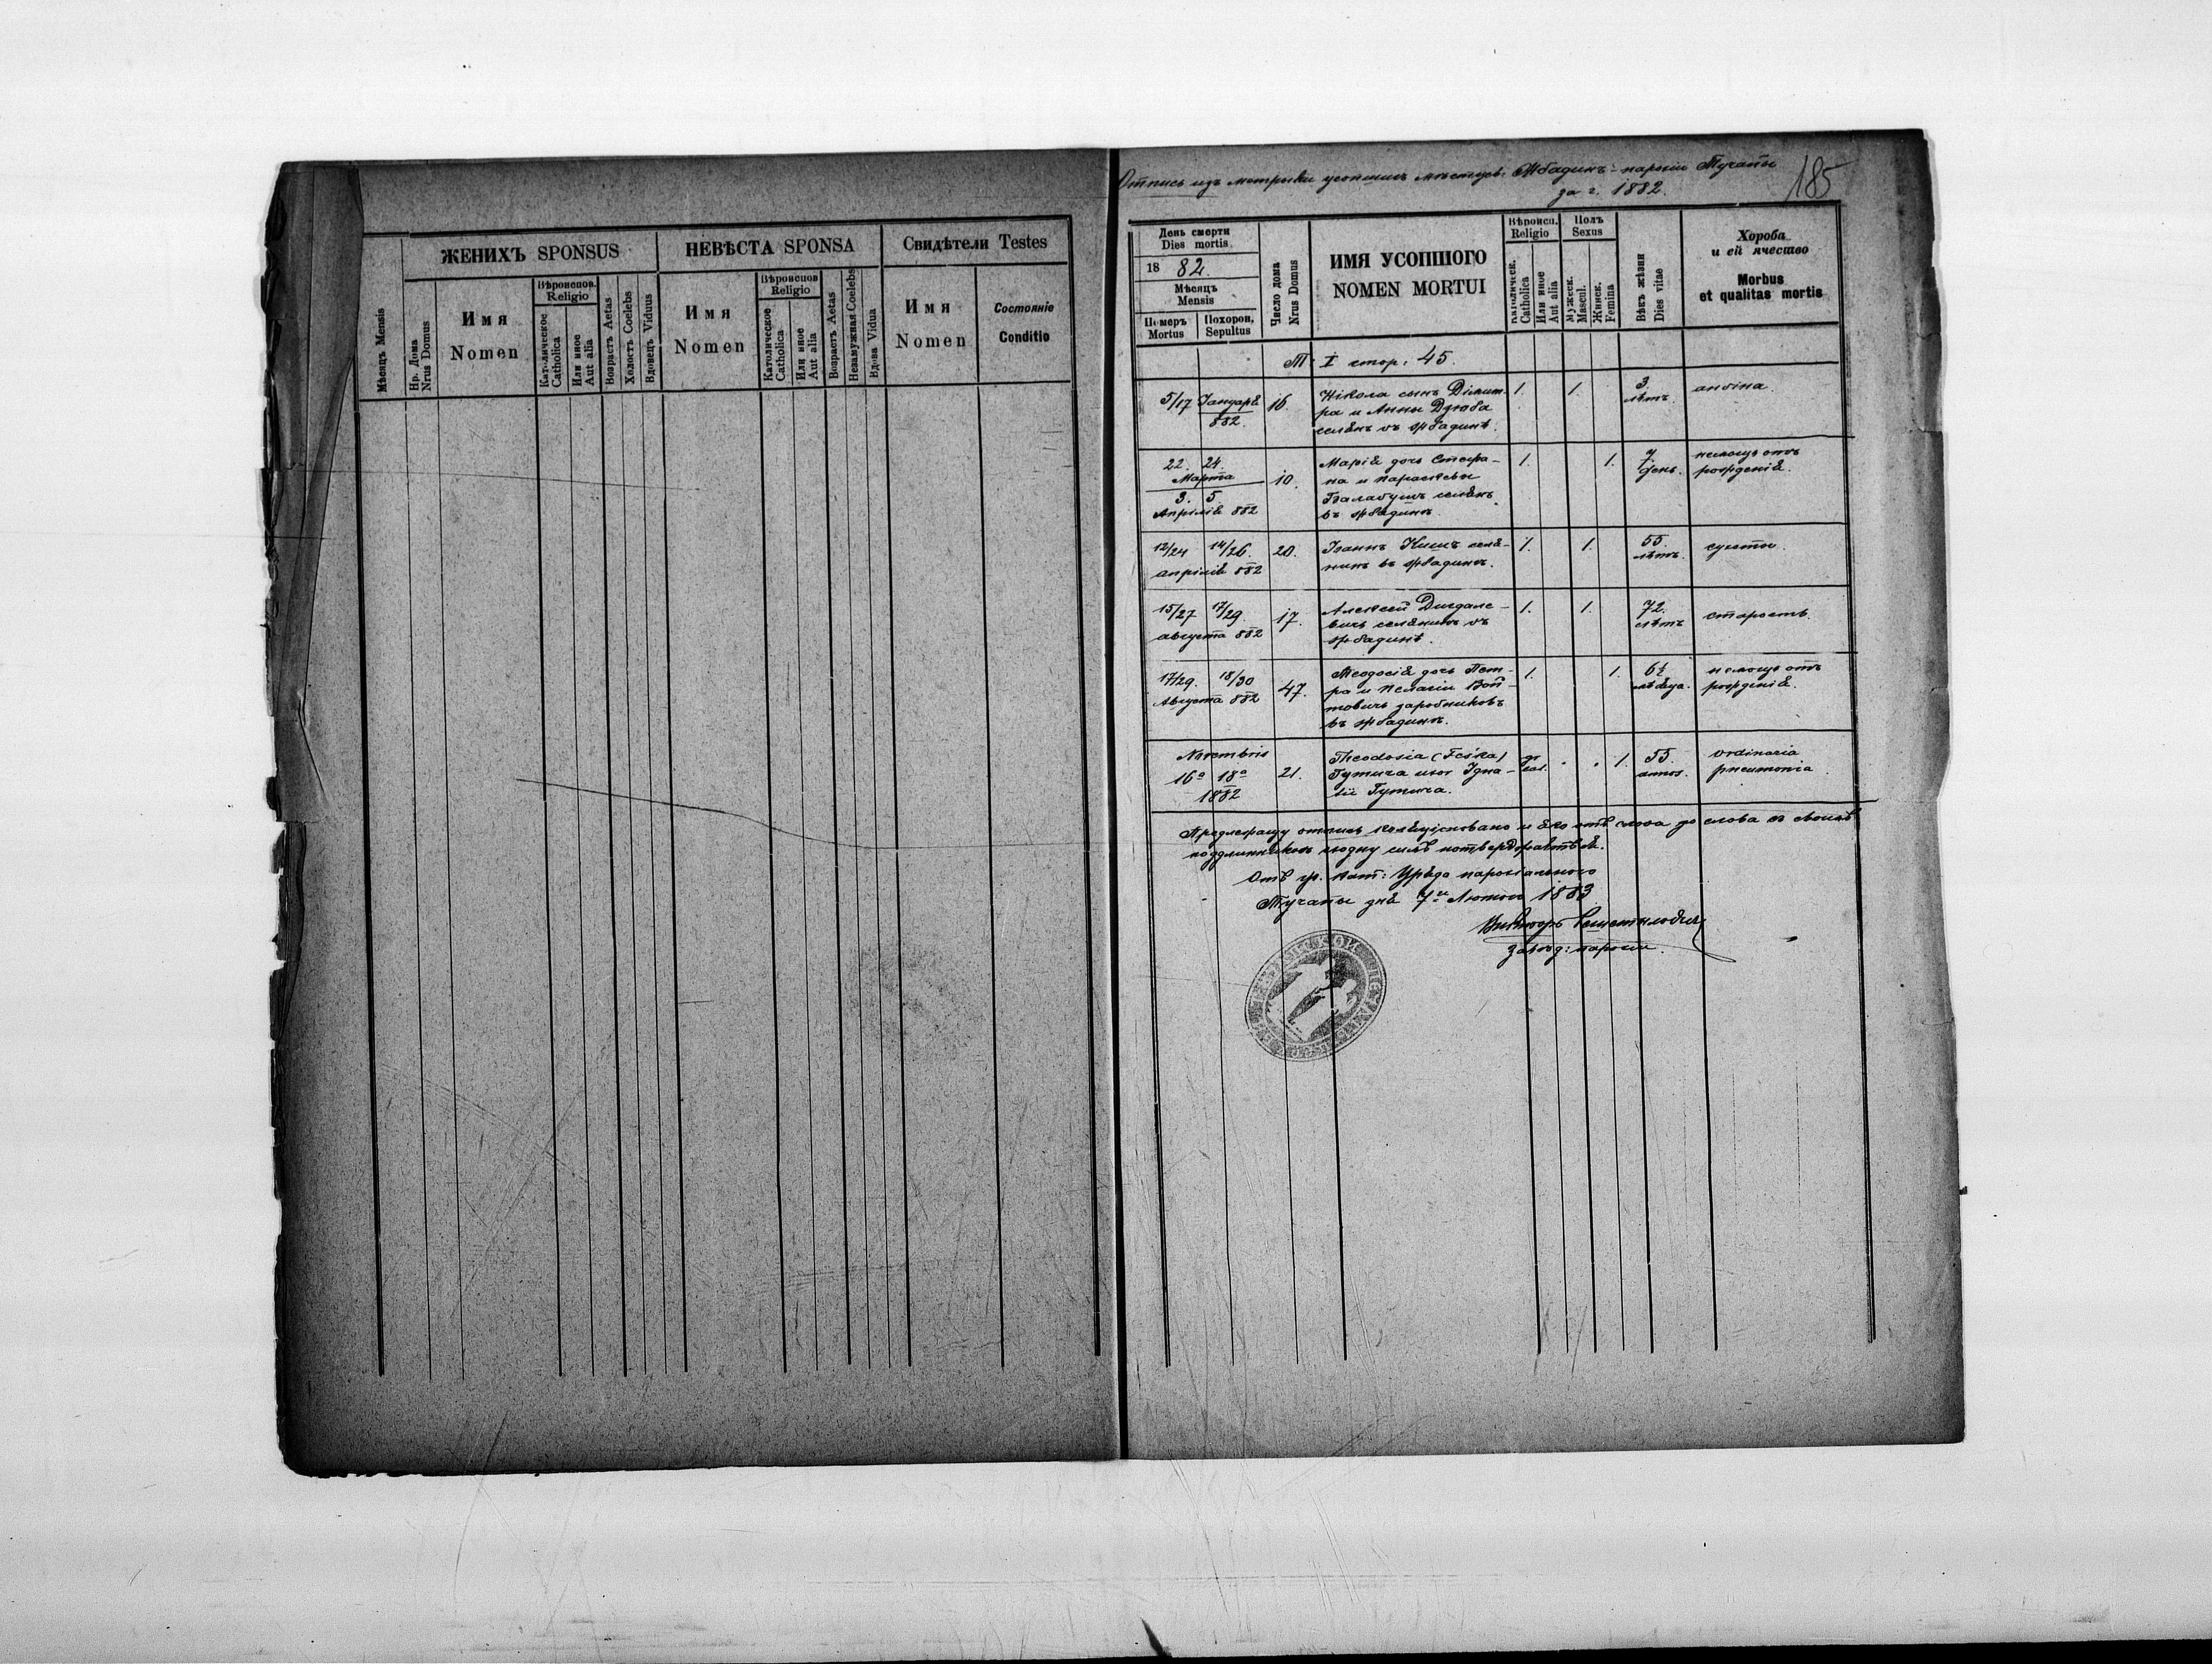 ЖЕНИХЪ SPONSUS
НЕВѢСТА SPONSA
Свидѣтели Testes
Мѣсяцъ Mensis
Нр. Дома
Nrus Domus
Имя
Nomen
Вѣроиспов.
Religio
Католическое
Catholica
Или иное
Aut alia
Возрастъ Aetas
Холостъ Coelebs
Вдовецъ Viduus
Имя
Nomen
Вѣроиспов
Religio
Католическое
Catholica
Или иное
Aut alia
Возрастъ Aetas
Незамужная Coelebs
Вдова Vidua
Имя
Nomen
Состояніе
Conditio
Отпись изъ метрыки усопшихъ мѣстцев: Жбадинъ - парохіи Тучапы
за г. 1882.
185
День смерти
Dies mortis
18 82.
Мѣсяцъ
Mensis
Померъ
Mortus
Похорон.
Sepultus
Число дома
Nrus Domus
ИМЯ УСОПШОГО
NOMEN MORTUI
Вѣроисп.
Religio
Католическ.
Catholica
Или иное
Aut alia
Полъ
Sexus
Мужеск.
Mascul.
Жинск.
Femina
Вѣкъ жизни
Dies vitae
Хороба
и ей ячество
Morbus
et qualitas mortis
Т: I стор: 45.
5/17 Januaрѣ 16. Нікола сынъ Дімит- 1. 1. 3. ангіна.
882. ра и Анны Дзюба лѣтъ
селянъ въ Жбадинѣ.
22. 24. Марія дочь Стефа- 1. 1. 7. немощь отъ
Марта 10. на и Параскевы день. рожденія.
3. 5. Балабухъ селянъ
Апрілія 882 въ Жбадинѣ
12/24 14/26. 20. Іоаннъ Кишъ селя- 1. 1. 55. сухоты.
апрілія 882 нинъ въ Жбадинѣ. лѣтъ.
15/27 17/29. 17. Алексей 1. 1. 72. старость.
августа 882 селянинъ въ лѣтъ
Жбадинѣ.
17/29. 18/30 47. Теодосія дочь Пет- 1. 1. 6½ немощь отъ
Августа 882 ра и Пелагіи Вой- мѣсяца. рожденія.
товичъ заробниковъ
въ Жбадинѣ.
Novembris Theodosia (Feśka) gr 1. 55. ordinaria
16ª 18ª 21. Гутича uxor Ігна- cat. annos. pneumonia
1882 тія Гутича.
отпись и яко отъ слова до слова съ своимъ
Отъ гр. кат: Уряда парохіального
Тучапы дня 7го Лютого 1883
Викторъ
завѣд: парохіи.